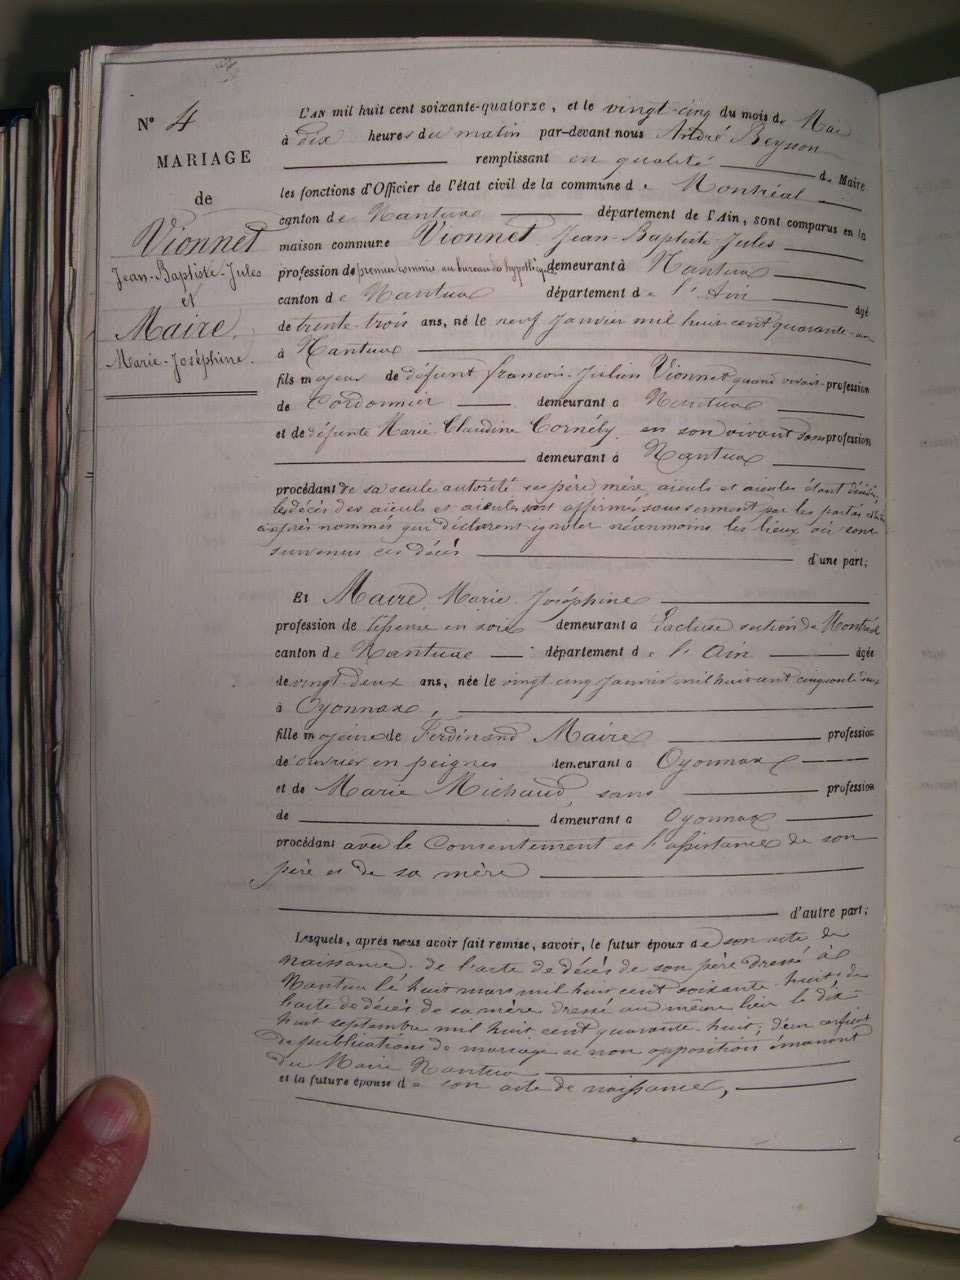 N° 4
MARIAGE
de
Vionnet
Jean-Baptiste-Jules
et
Maire
Marie-Joséphine.
L'AN mil huit cent soixante-quatorze, et le vingt-cinq du mois de Mai
à dix heures du matin par-devant nous André
remplissant en qualité de Maire
les fonctions d'Officier de l'état civil de la commune de Montréal
canton de Nantua département de l'Ain, sont comparus en la
maison commune Vionnet Jean-Baptiste-Jules
profession de premier commis au bureau des hypothèques demeurant à Nantua
canton de Nantua département de l'Ain âgé
de trente-trois ans, né le neuf Janvier mil huit cent quarante-un
à Nantua
fils majeur de défunt françois-Julien Vionnet quand vivait profession
de Cordonnier demeurant à Nantua
et de défunte Marie-Claudine Cornély en son vivant sans profession
demeurant à Nantua
procédant de sa seule autorité ses père mère, aïeuls et aïeules étant décédés,
les décès des aïeuls et aïeules sont affirmés sous serment par les parties et les
ci-après nommés qui déclarent ignorer néanmoins les lieux où sont
survenus ces décès d'une part;
Et Maire Marie Joséphine
profession de en soie demeurant à Lécluse section de Montréal
canton de Nantua département de l'Ain âgée
de vingt-deux ans, née le vingt cinq Janvier mil huit cent cinquante deux
à Oyonnax,
fille majeure de Ferdinand Maire profession
de ouvrier en peignes demeurant à Oyonnax
et de Marie Michaud, sans profession
de demeurant à Oyonnax
procédant avec le Consentement et l'assistance de son
père et de sa mère
d'autre part;
Lesquels, après nous avoir fait remise, savoir, le futur époux de son acte de
naissance, de l'acte de décès de son père dressé à
Nantua le huit mars mil huit cent soixante-huit, de
l'acte de décès de sa mère dressé au même lieu le dix-
huit septembre mil huit cent quarante-huit; d'un certificat
de publications de mariage et non opposition émanant
du Maire Nantua
et la future épouse de son acte de naissance,